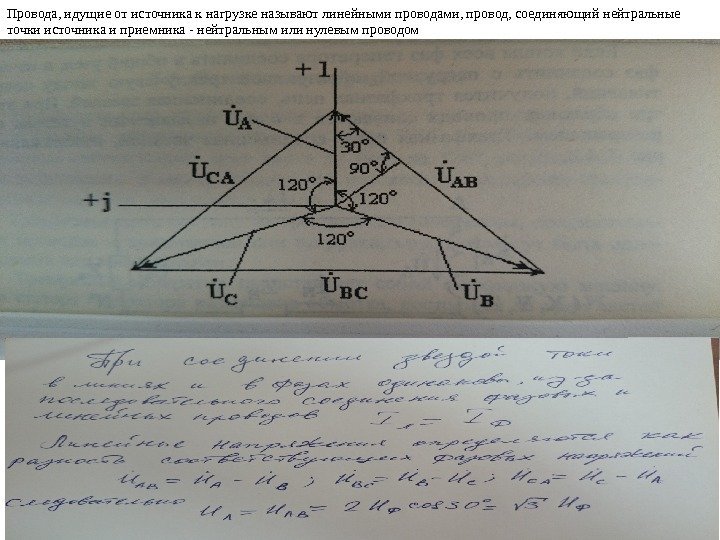 Провода, идущие от источника к нагрузке называют линейными проводами, провод, соединяющий нейтральные
точки источника и приемника - нейтральным или нулевым проводом
+1
U̇A
30°
90°
U̇CA
U̇AB
120°
120°
+j
120°
U̇C
U̇BC
U̇B
При соединении звездой токи
в линиях и в фазах одинаковы, из-за
последовательного соединения фазовых и
линейных проводов Iл = IФ
Линейные напряжения определяются как
разность соответствующих фазовых напряжений
U̇AB = U̇A - U̇B ; U̇BC = U̇B - U̇C ; U̇CA = U̇C - U̇A
следовательно Uл = UAB = 2 UФ cos30° = √3 UФ